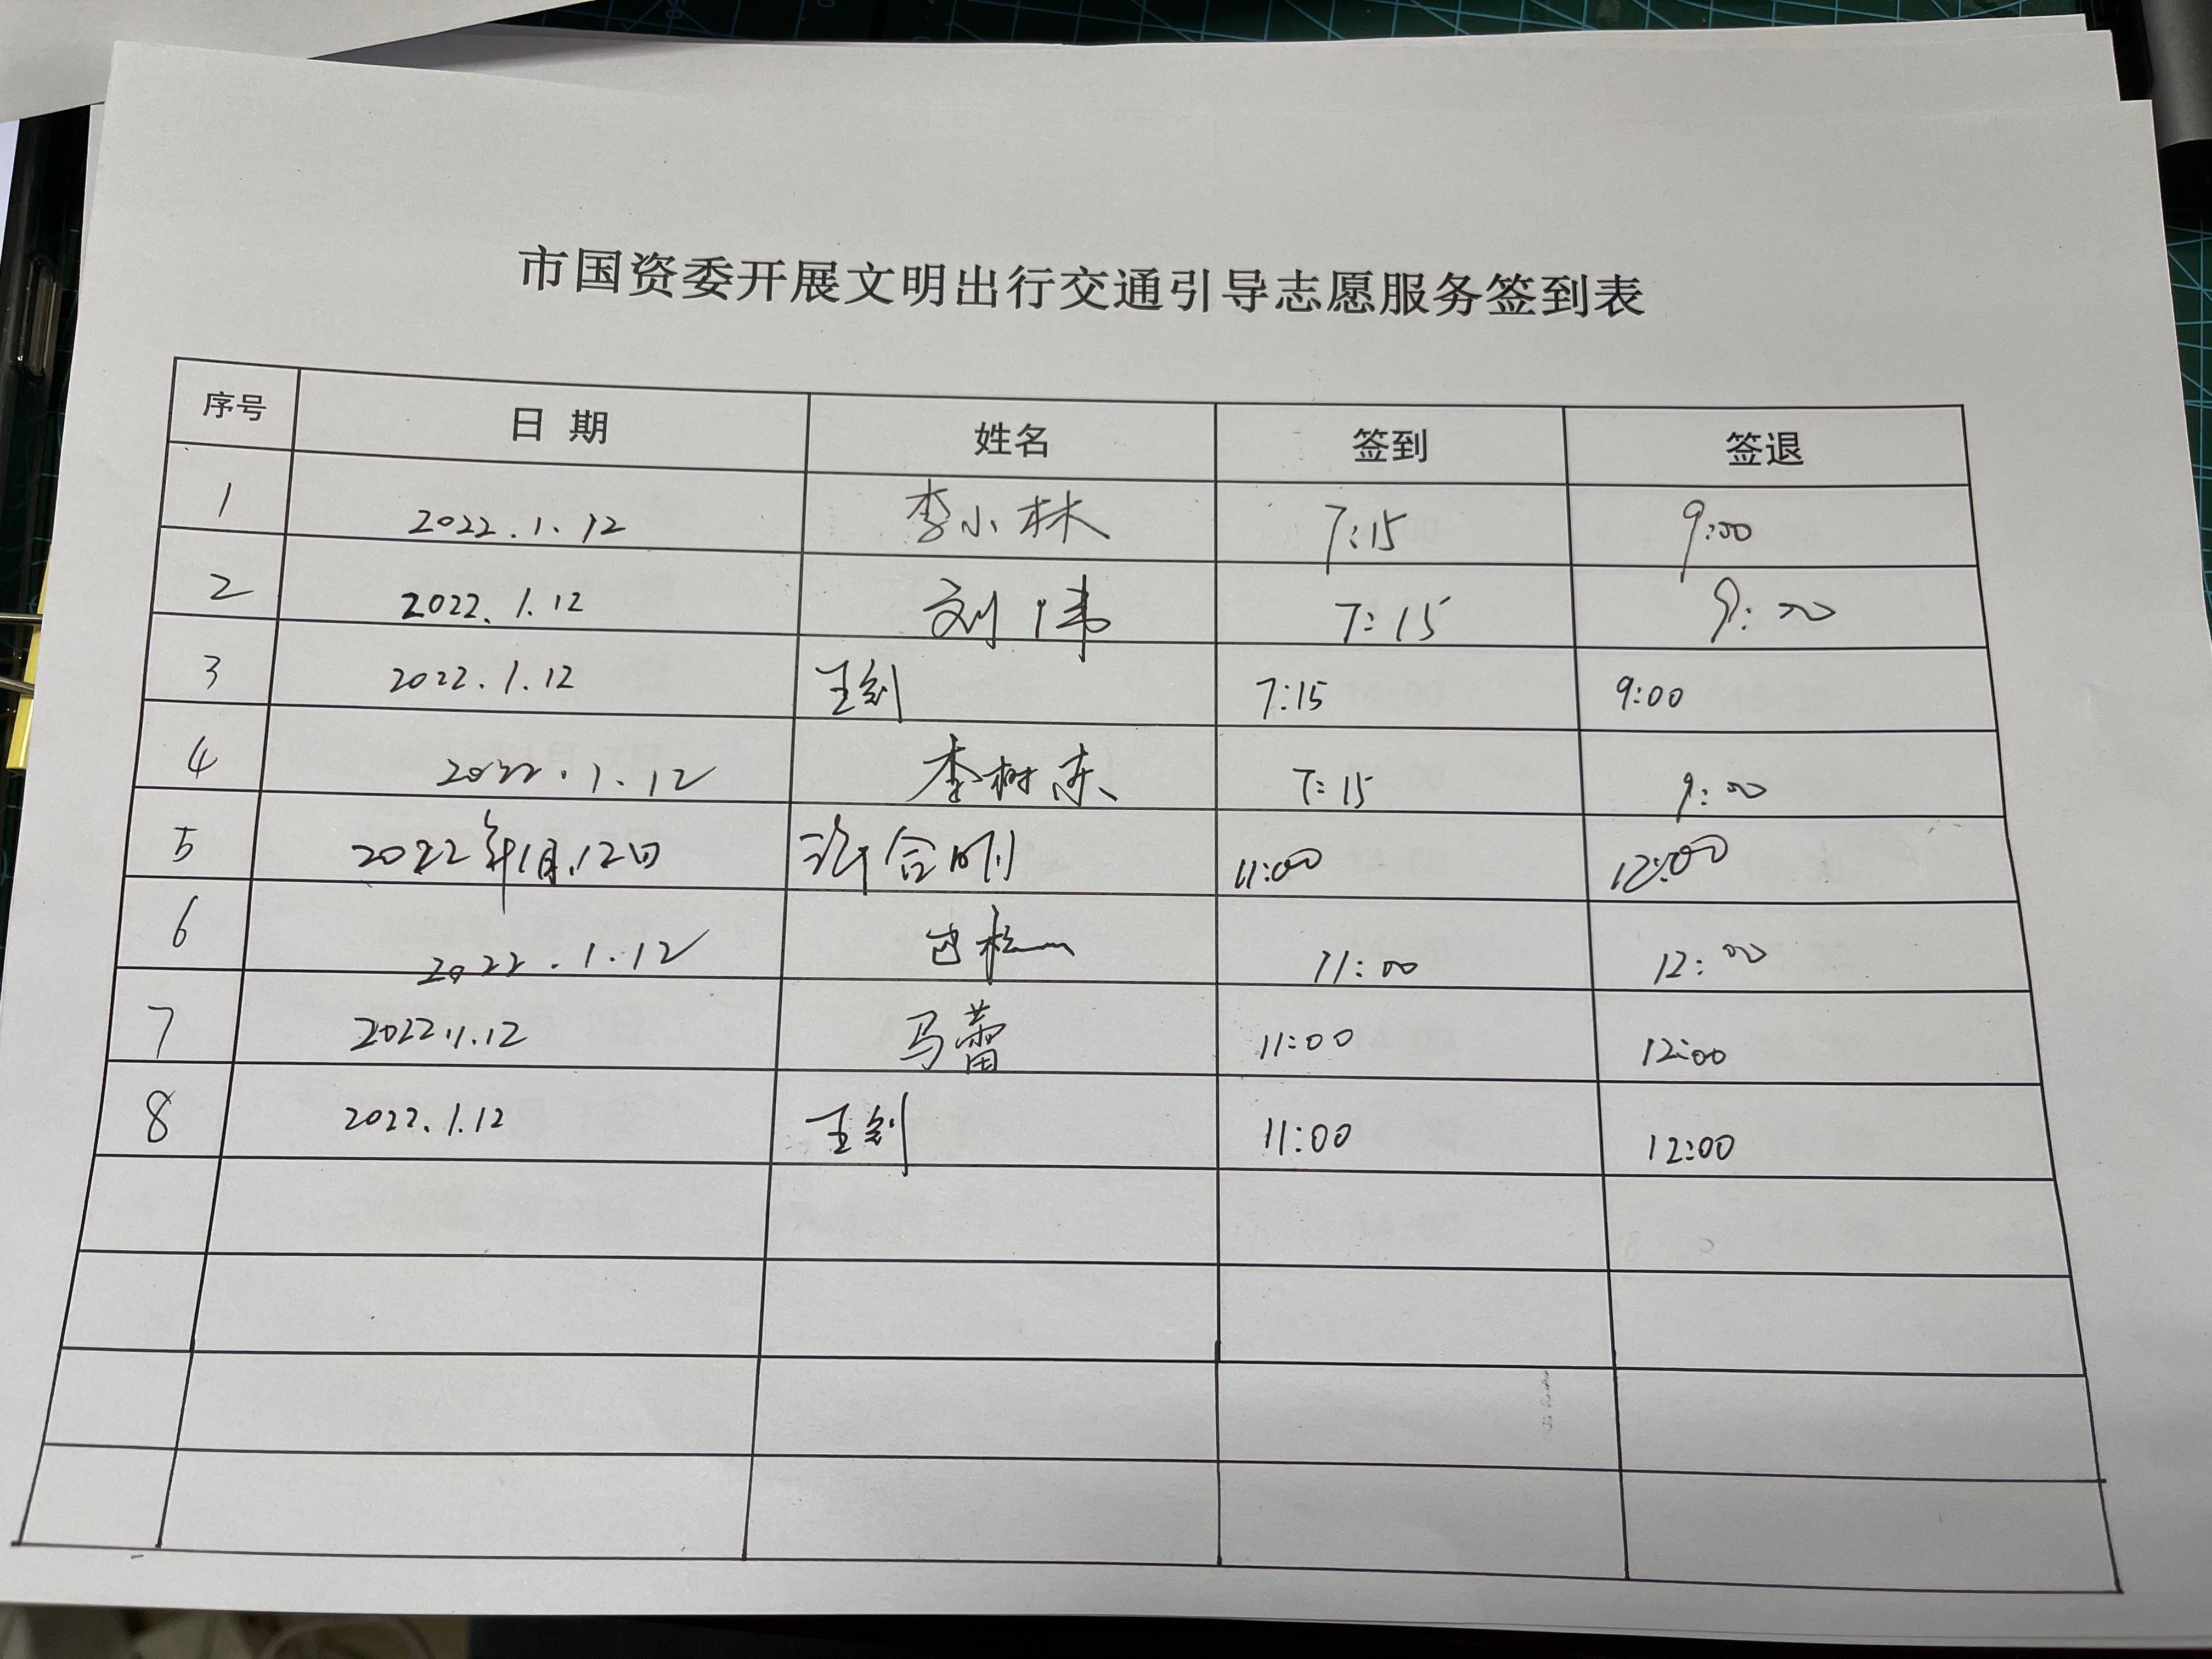 市国资委开展文明出行交通引导志愿服务签到表
序号 日期 姓名 签到 签退
1 2022.1.12 李小林 7:15 9:00
2 2022.1.12 刘伟 7:15 9:00
3 2022.1.12 王剑 7:15 9:00
4 2022.1.12 李树东 7:15 9:00
5 2022年1月12日 11:00 12:00
6 2022.1.12 11:00 12:00
7 2022.1.12 马蕾 11:00 12:00
8 2022.1.12 王剑 11:00 12:00